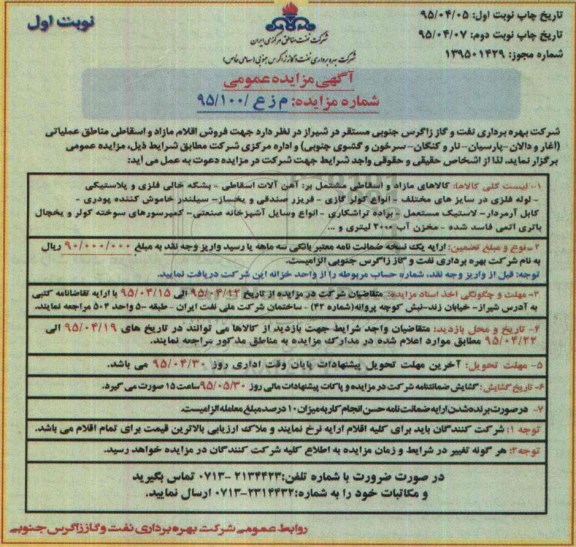 تاریخ چاپ نوبت اول: ۹۵/۰۴/۰۵
تاریخ چاپ نوبت دوم: ۹۵/۰۴/۰۷
شماره مجوز: ۱۳۹۵۰۱۴۲۹
نوبت اول
شرکت نفت مناطق مرکزی ایران
شرکت بهره برداری نفت و گاز زاگرس جنوبی (سهامی خاص)
آگهی مزایده عمومی
شماره مزایده: م ز ع /۹۵/۱۰۰
شرکت بهره برداری نفت و گاز زاگرس جنوبی مستقر در شیراز در نظر دارد جهت فروش اقلام مازاد و اسقاطی مناطق عملیاتی
(آغار و دالان-پارسیان- نار و کنگان-سرخون و گشوی جنوبی) و اداره مرکزی شرکت مطابق شرایط ذیل، مزایده عمومی
برگزار نماید. لذا از اشخاص حقیقی و حقوقی واجد شرایط جهت شرکت در مزایده دعوت به عمل می آید:
۱- لیست کلی کالاها: کالاهای مازاد و اسقاطی مشتمل بر: آهن آلات اسقاطی - بشکه خالی فلزی و پلاستیکی
- لوله فلزی در سایز های مختلف - انواع کولر گازی - فریزر صندقی و یخساز- سیلندر خاموش کننده پودری -
کابل آرمردار- لاستیک مستعمل - براده تراشکاری - انواع وسایل آشپزخانه صنعتی- کمپرسورهای سوخته کولر و یخچال
باتری اتمی فاسد شده - مخزن آب ۲۰۰۰ لیتری و ...
۲- نوع و مبلغ تضمین: ارایه یک نسخه ضمانت نامه معتبر بانکی سه ماهه یا رسید واریز وجه نقد به مبلغ ۹۰/۰۰۰/۰۰۰ ریال
به نام شرکت بهره برداری نفت و گاز زاگرس جنوبی الزامیست.
توجه: قبل از واریز وجه نقد، شماره حساب مربوطه را از واحد خزانه این شرکت دریافت نمایید.
۳- مهلت و چگونگی اخذ اسناد مزایده: متقاضیان شرکت در مزایده از تاریخ ۹۵/۰۴/۱۲ الی ۹۵/۰۴/۱۵ با ارایه تقاضانامه کتبی
به آدرس شیراز- خیابان زند-نبش کوچه پروانه(شماره ۴۲) - ساختمان شرکت ملی نفت ایران - طبقه ۵- واحد ۵۰۴ مراجعه نمایند.
۴- تاریخ و محل بازدید: متقاضیان واجد شرایط جهت بازدید از کالاها می توانند در تاریخ های ۹۵/۰۴/۱۹ الی
۹۵/۰۴/۲۲ مطابق موارد اعلام شده در مدارک مزایده به مناطق مذکور مراجعه نمایند.
۵- مهلت تحویل: آخرین مهلت تحویل پیشنهادات پایان وقت اداری روز ۹۵/۰۴/۳۰ می باشد.
۶- تاریخ گشایش: گشایش ضمانتنامه شرکت در مزایده و پاکات پیشنهادات مالی روز ۹۵/۰۵/۳۰ ساعت ۱۵ صورت می گیرد.
۷- در صورت برنده شدن ارایه ضمانت نامه حسن انجام کار به میزان ۱۰ درصد مبلغ معامله الزامیست.
توجه ۱: شرکت کنندگان باید برای کلیه اقلام ارایه نرخ نمایند و ملاک ارزیابی بالاترین قیمت برای تمام اقلام می باشد.
توجه۲: هر گونه تغییر در شرایط و زمان مزایده به اطلاع کلیه شرکت کنندگان در مزایده خواهد رسید.
در صورت ضرورت با شماره تلفن:۲۱۳۴۴۲۳ -۰۷۱۳ تماس بگیرید
و مکاتبات خود را به شماره:۲۳۱۴۴۳۲-۰۷۱۳ ارسال نمایید.
روابط عمومی شرکت بهره برداری نفت و گاز زاگرس جنوبی